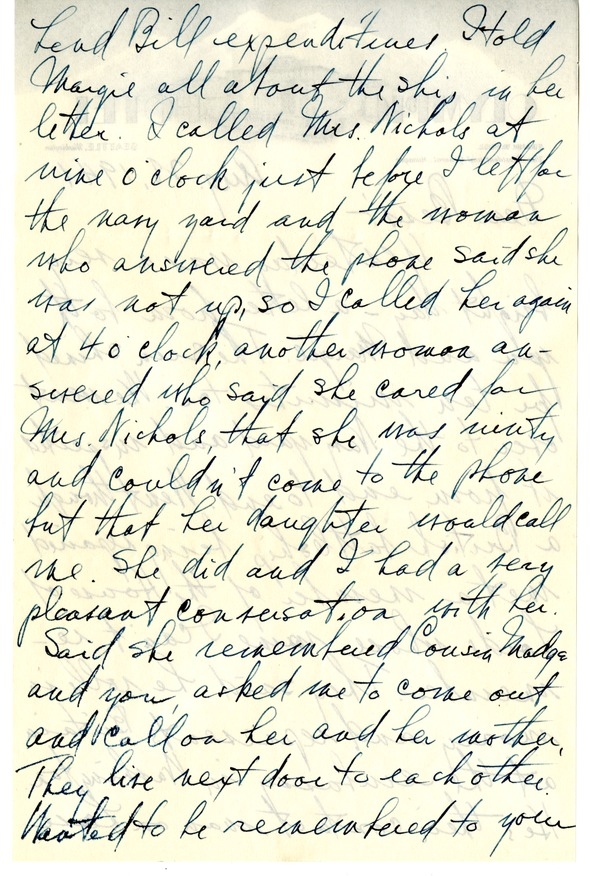 Lend Bill expenditures. I told
Margie all about the ship in her
letter. I called Mrs. Nichols at
nine o'clock just before I left for
the navy yard and the woman
who answered the phone said she
was not up, so I called her again
at 4 o'clock, another woman an-
swered who said she cared for
Mrs. Nichols, that she was ninty
and couldn't come to the phone
but that her daughter would call
me. She did and I had a very
pleasant conversation with her.
Said she remembered Cousin Madge
and you, asked me to come out
and call on her and her mother.
They live next door to each other.
Wanted to be remembered to your